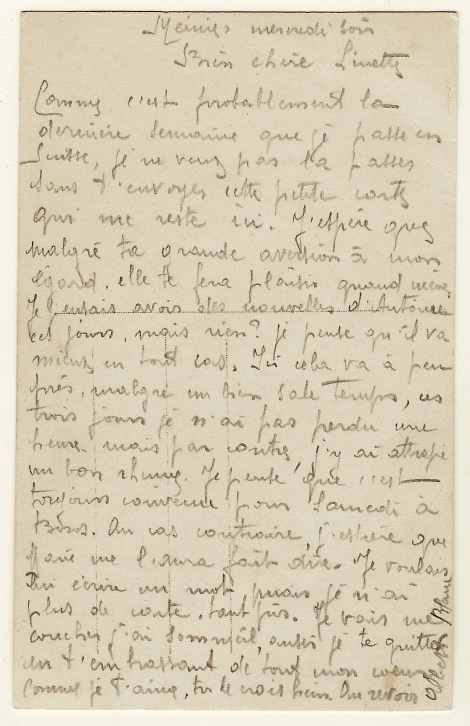 mercredi soir
Bien chère Linette
Comme c'est probablement la
dernière semaine que je passe en
Suisse, je ne veux pas la passer
sans t'envoyer cette petite carte
qui me reste ici. J'espère que
malgré ta grande aversion à mon
égard, elle te fera plaisir quand même
Je pensais avoir des nouvelles d'Antoine
ces jours, mais rien? je pense qu'il va
mieux en tout cas. Ici cela va à peu
près, malgré un bien sale temps, ces
trois jours je n'ai pas perdu une
heure. mais par contre, j'y ai attrapé
un bon rhume. Je pense que c'est
toujours convenu pour Samedi à
Au cas contraire, j'espère que
me l'aura fait dire. Je voulais
lui écrire un mot mais je n'ai
plus de carte, tant pis. Je vais me
coucher j'ai sommeil, aussi je te quitte
en t'embrassant de tout mon coeur
comme je t'aime, tu le crois bien. Au revoir